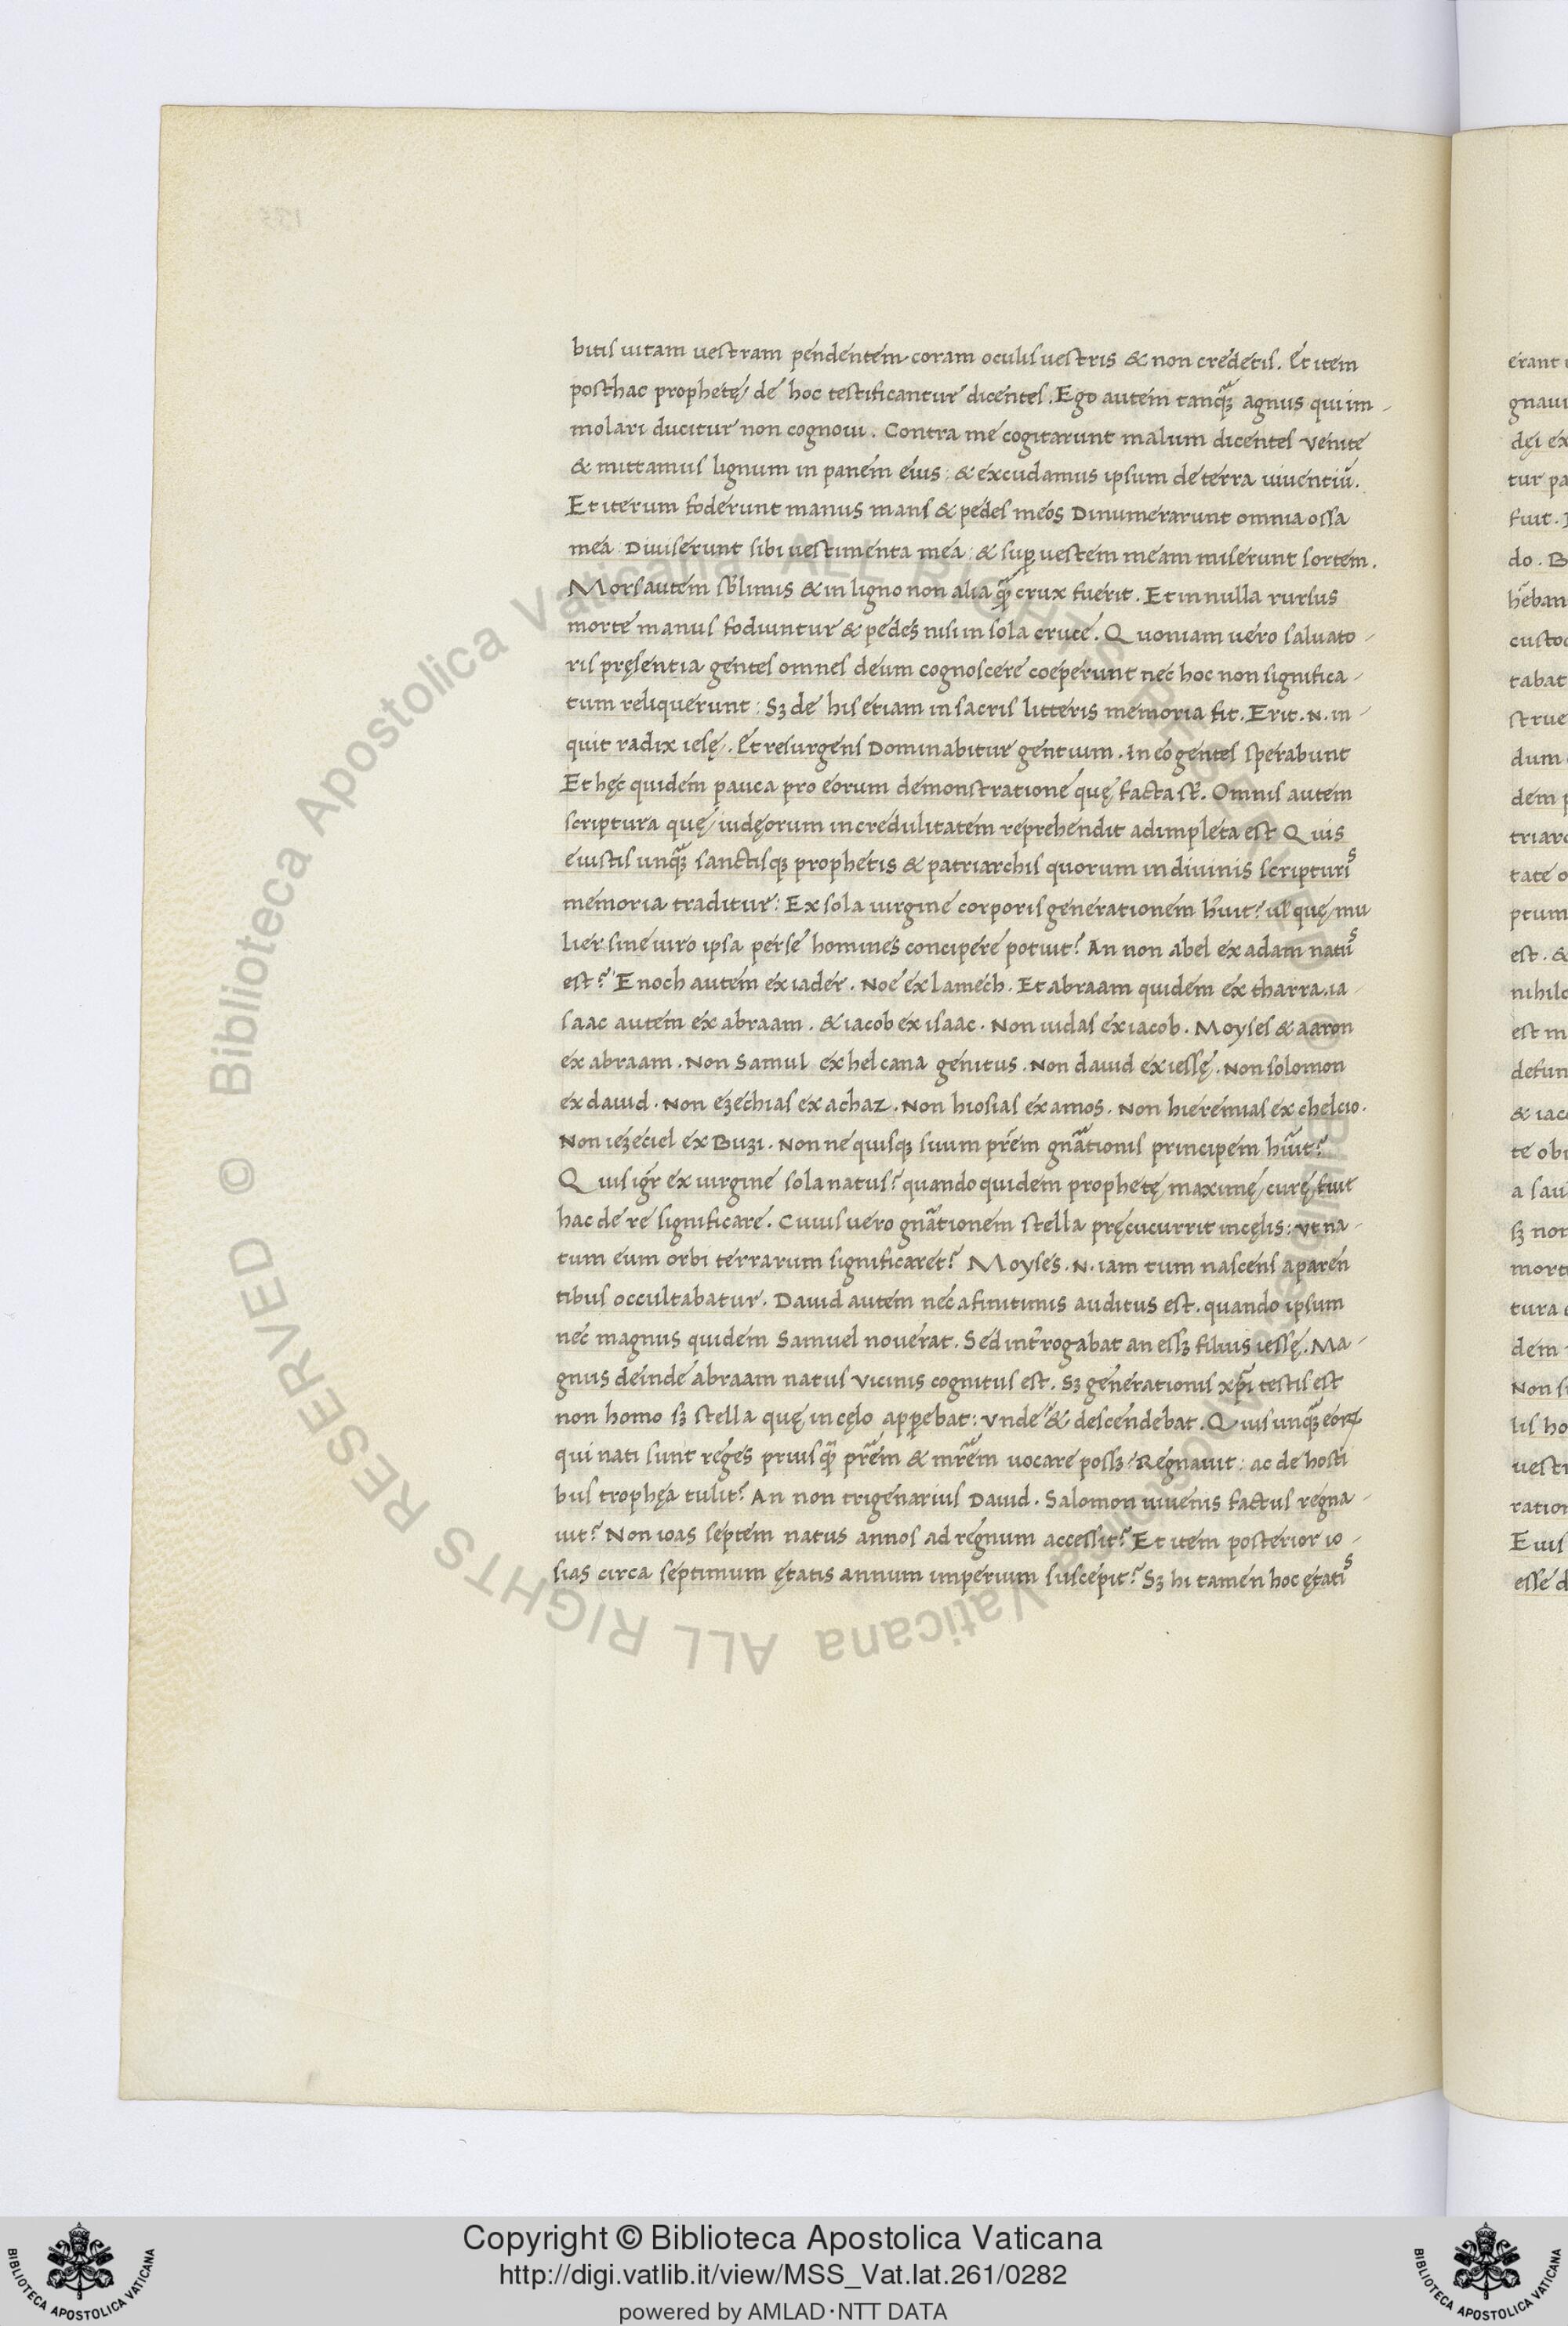 bitis uitam uestram pendentem coram oculis uestris & non credetis. Et item
posthac prophetę de hoc testificantur dicentes. Ego autem tanq̃ȝ agnus qui im-
molari ducitur non cognoui. Contra me cogitarunt malum dicentes venite
& mittamus lignum in panem eius: & excudamus ipsum de terra uiuentiũ.
Et iterum foderunt manus mans & pedes meos Dinumerarunt omnia ossa
mea: Diuiserunt sibi uestimenta mea: & suꝑ uestem meam miserunt sortem.
Mors autem sb̃limis & in ligno non alia q̃ȝ crux fuerit. Et in nulla rursus
morte manus fodiuntur & pedes nisi in sola cruce. Quoniam uero saluato-
ris pręsentia gentes omnes deum cognoscere coeperunt nec hoc non significa-
tum reliquerunt: Sȝ de his etiam in sacris litteris memoria fit. Erit. N. in-
quit radix iesę. Et resurgens Dominabitur gentium. In eo gentes sperabunt
Et hęc quidem pauca pro eorum demonstratione quę facta st̃. Omnis autem
scriptura quę iudęorum incredulitatem reprehendit adimpleta est Quis
e iustis unq̃ȝ sanctisqȝ prophetis & patriarchis quorum in diuinis scripturis
memoria traditur: Ex sola uirgine corporis generationem h̃uit? ul̃ quę mu
lier sine uiro ipsa per se homines concipere potuit? An non abel ex adam natus
est? Enoch autem ex iader. Noe ex lamech. Et abraam quidem ex tharra. ia-
saac autem ex abraam. & iacob ex isaac. Non iudas ex iacob. Moyses & aaron
ex abraam. Non Samul ex helcana genitus. Non dauid ex iessę. Non solomon
ex dauid. Non ezechias ex achaz. Non hiosias ex amos. Non hieremias ex chelcio.
Non iezeciel ex Buzi. Non ne quisqȝ suum pr̃em gñationis principem hũit?
Quis igr̃ ex uirgine sola natus? quando quidem prophetę maximę curę fuit
hac de re significare. Cuius uero gñationem stella pręcucurrit in cęlis: ut na-
tum eum orbi terrarum significaret? Moyses. N. iam tum nascens a paren
tibus occultabatur. Dauid autem nec a finitimis auditus est. quando ipsum
nec magnus quidem Samuel nouerat. Sed int̃rogabat an essȝ filius iessę. Ma-
gnus deinde abraam natus vicinis cognitus est. Sȝ generationis xp̃i testis est
non homo sȝ stella quę in cęlo apꝑebat: Vnde & descendebat. Quis unq̃ȝ eoꝝ
qui nati sunt reges prius q̃ȝ pr̃em & mr̃em uocare possȝ: Regnauit: ac de hosti
bus trophęa tulit? An non trigenarius Dauid. Salomon iuuenis factus regna-
uit? Non ioas septem natus annos ad regnum accessit? Et item posterior io-
sias circa septimum ętatis annum imperium suscepit? Sȝ hi tamen hoc ętatis
erant
gnaui
dęi ex
tur pa
fuit.
do. B
h̃eban
custo
tabat
strue
dum
dem p
triarc
tate o
ptum
est. &
nihilo
est m
defun
& iac
te obi
a sau
sȝ non
morte
tura
dem
Non s
lis ho
uesti
ration
Euis
esse d
© Biblioteca Apostolica Vaticana ALL RIGHTS RESERVED © Biblioteca Apostolica Vaticana ALL RIGHTS RESERVED
Copyright © Biblioteca Apostolica Vaticana
http://digi.vatlib.it/view/MSS_Vat.lat.261/0282
powered by AMLAD·NTT DATA
BIBLIOTECA APOSTOLICA VATICANA
BIBLIOTECA APOSTOLICA VATICANA